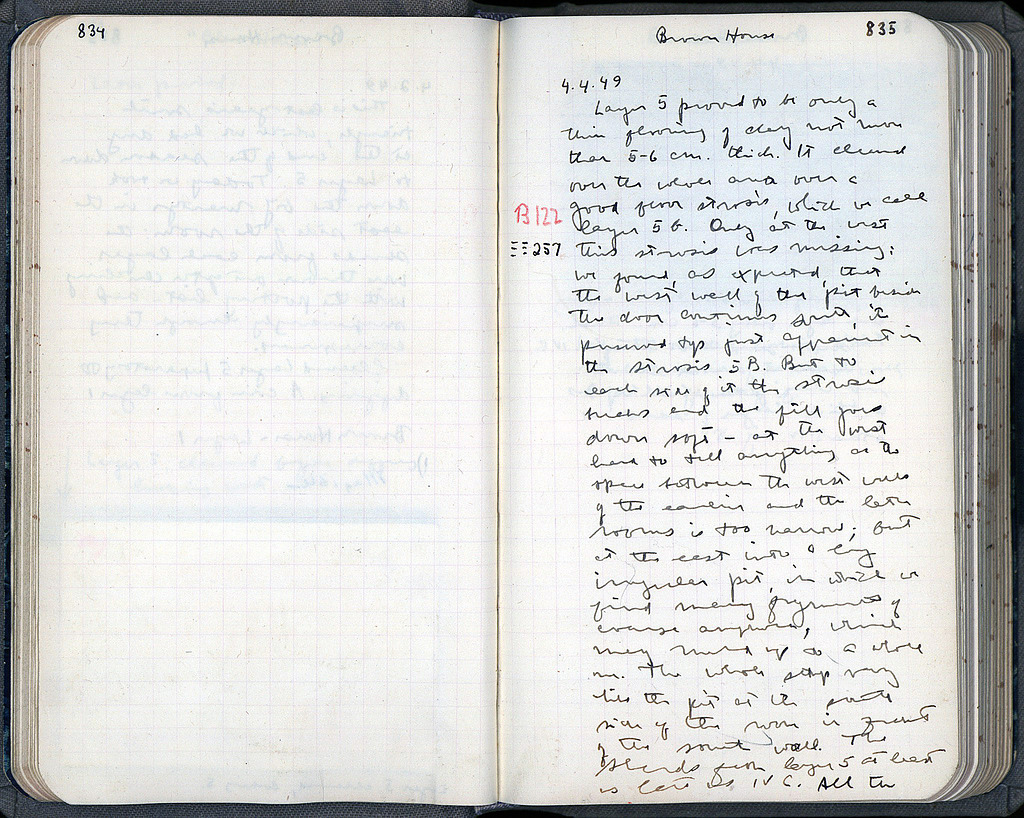 834
835
Brown House
4.4.49
Layer 5 proved to be only a
thin flooring of clay not more
than 5-6 cm. thick. It cleaned
over the whole area over a
B 122
good floor strosis, which we call
layer 5 b. Only at the west
257
this strosis was missing:
we found, as expected, that
the west wall of the pit beside
the door continues south, its
preserved top just apparent in
the strosis 5 B. But to
each side of it the strosis
breaks and the fill goes
down soft — at the west
hard to tell anything as the
space between the west walls
of the earlier and the later
rooms is too narrow; but
at the east into a big
irregular pit, in which we
find many fragments of
coarse amphora, which
may mend up to a whole
one. The whole stop very
like the pit at the south
side of the room in front
of the south wall. The
sherds from layer 5 at least
is late as IV C. All the